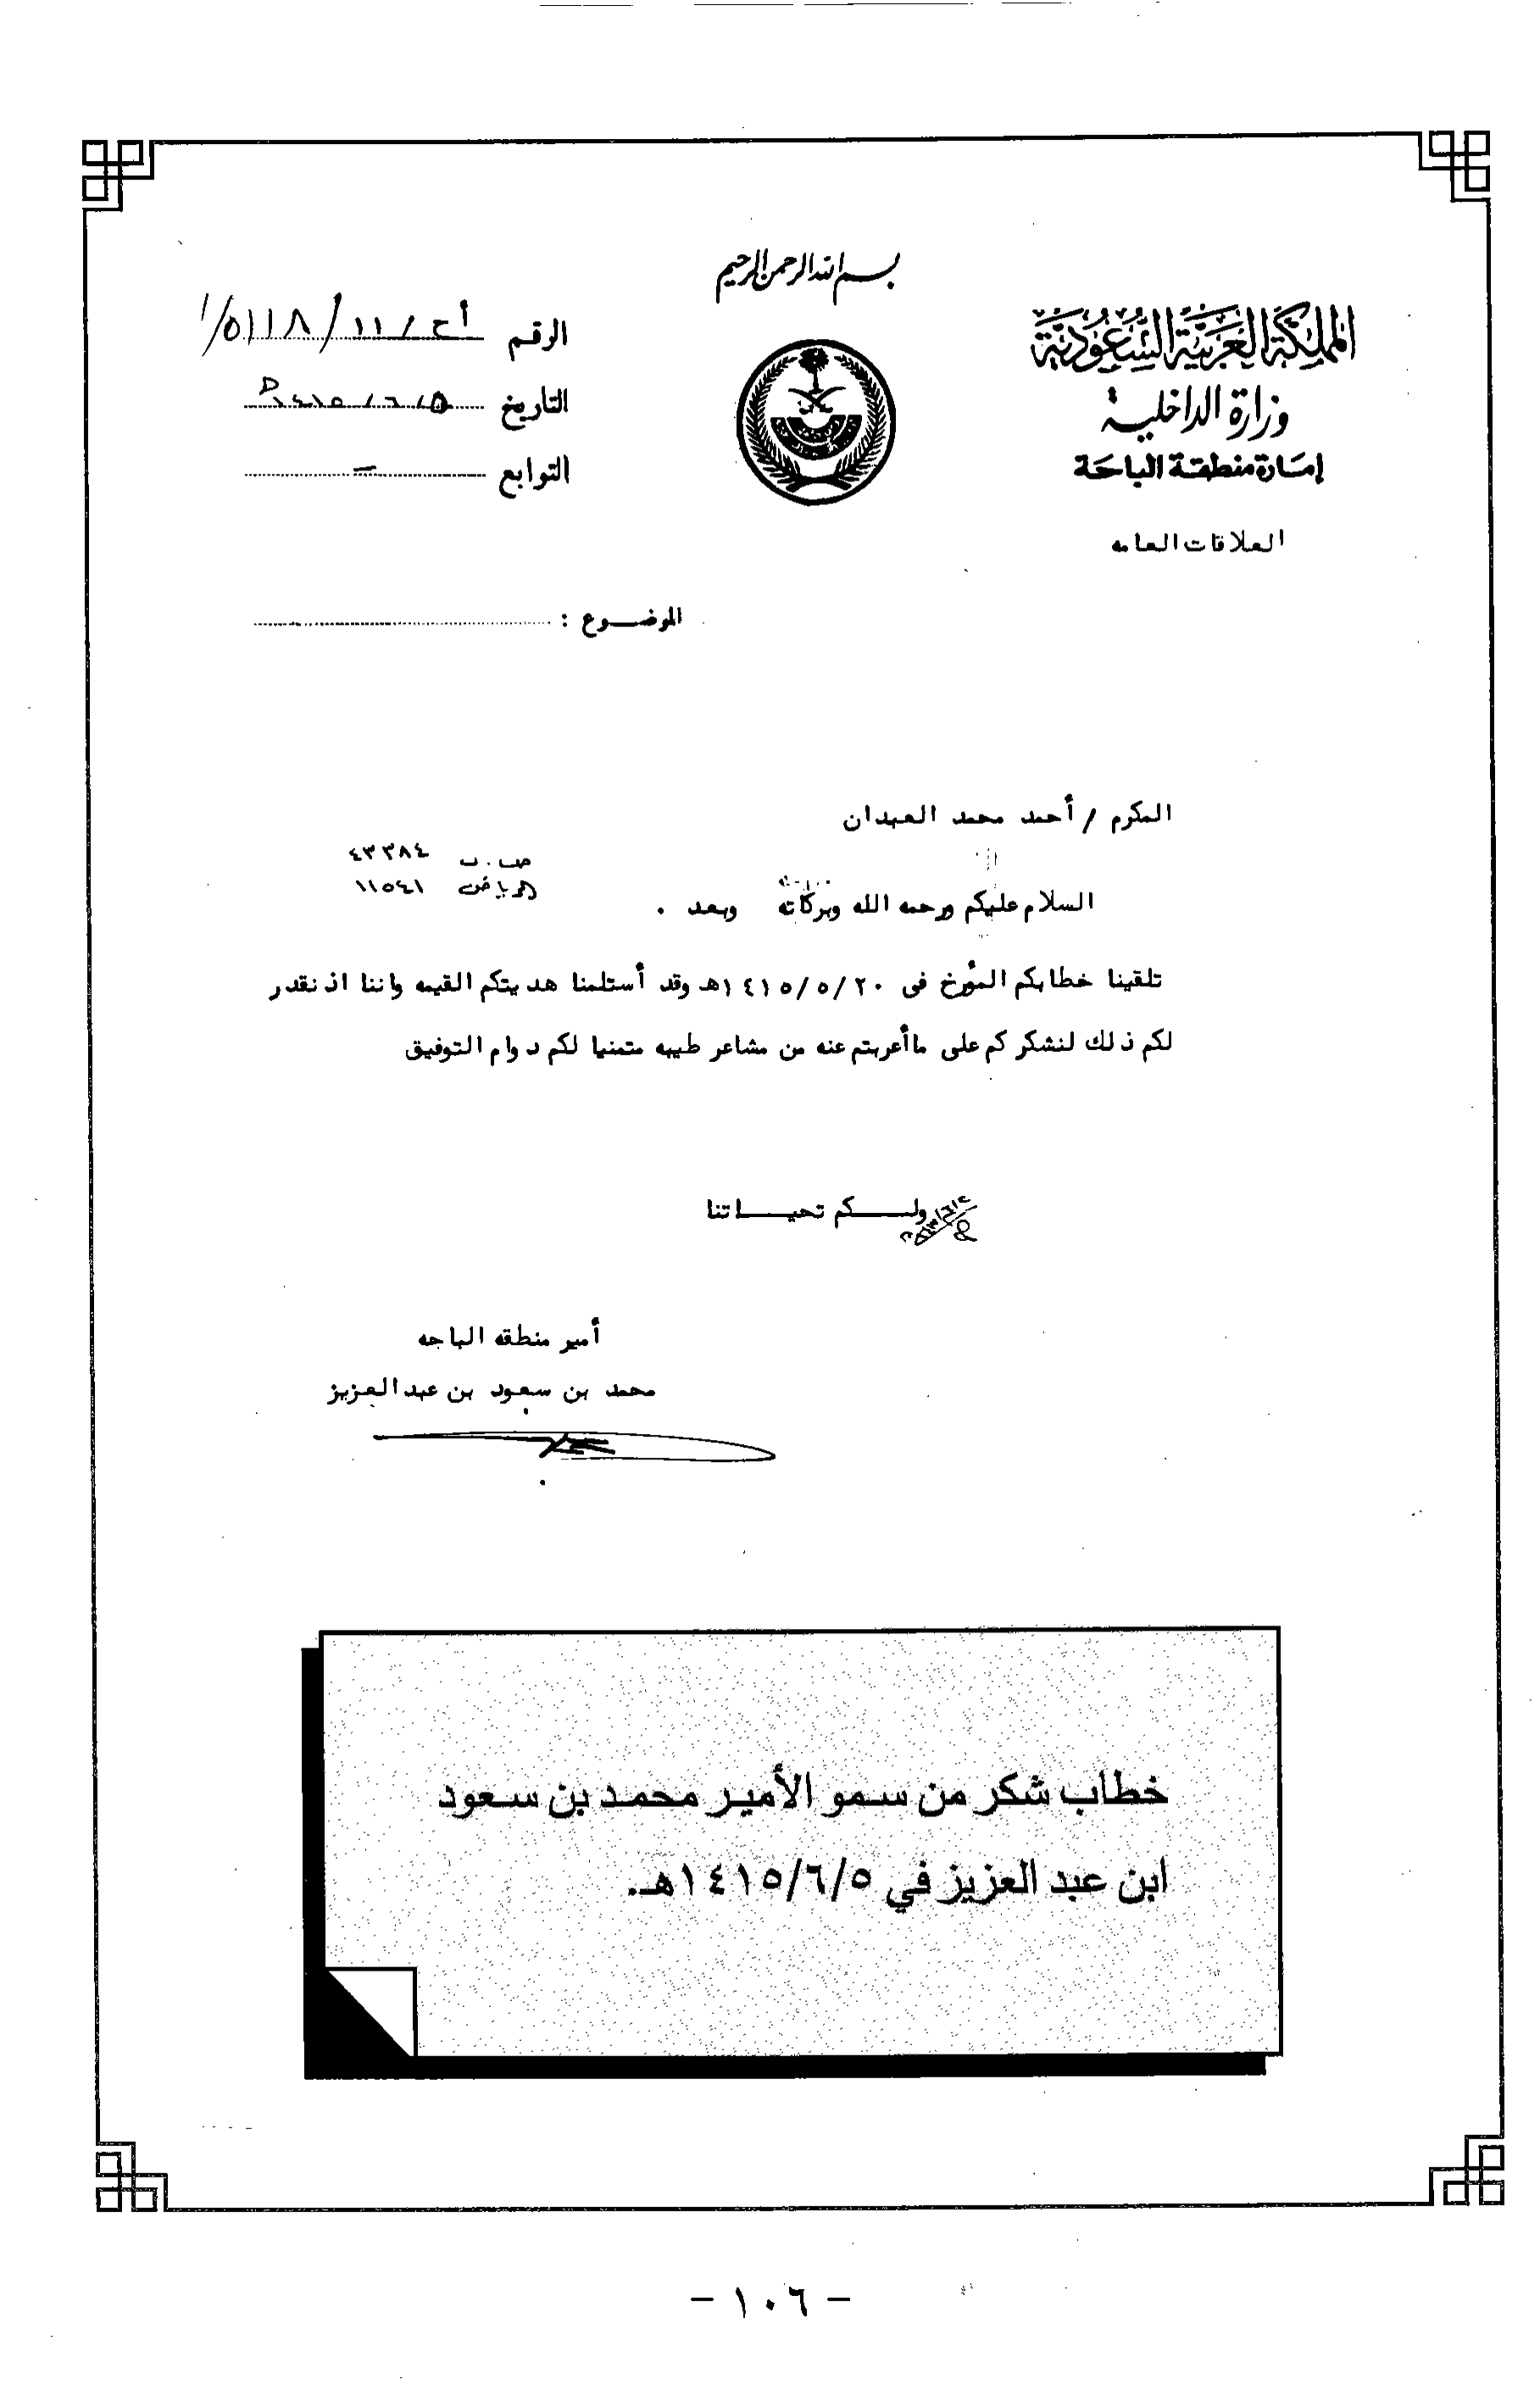 بسم الله الرحمن الرحيم
المملكة العربية السعودية
وزارة الداخلية
إمارة منطقة الباحة
العلاقات العامه
الرقم
التاريخ ١٤١٥/٦/٥هـ
التوابع —
الموضوع :
المكرم / أحمد محمد العبدان
ص.ب ٤٣٣٨٤
الرياض ١١٥٤١
السلام عليكم ورحمه الله وبركاته وبعد .
تلقينا خطابكم المؤرخ فى ١٤١٥/٥/٢٠هـ وقد أستلمنا هديتكم القيمه واننا اذ نقدر
لكم ذلك لنشكركم على ماأعربتم عنه من مشاعر طيبه متمنيا لكم دوام التوفيق
ولكم تحياتنا
أمير منطقه الباحه
محمد بن سعود بن عبدالعزيز
خطاب شكر من سمو الأمير محمد بن سعود
ابن عبد العزيز في ١٤١٥/٦/٥هـ.
– ١٠٦ –